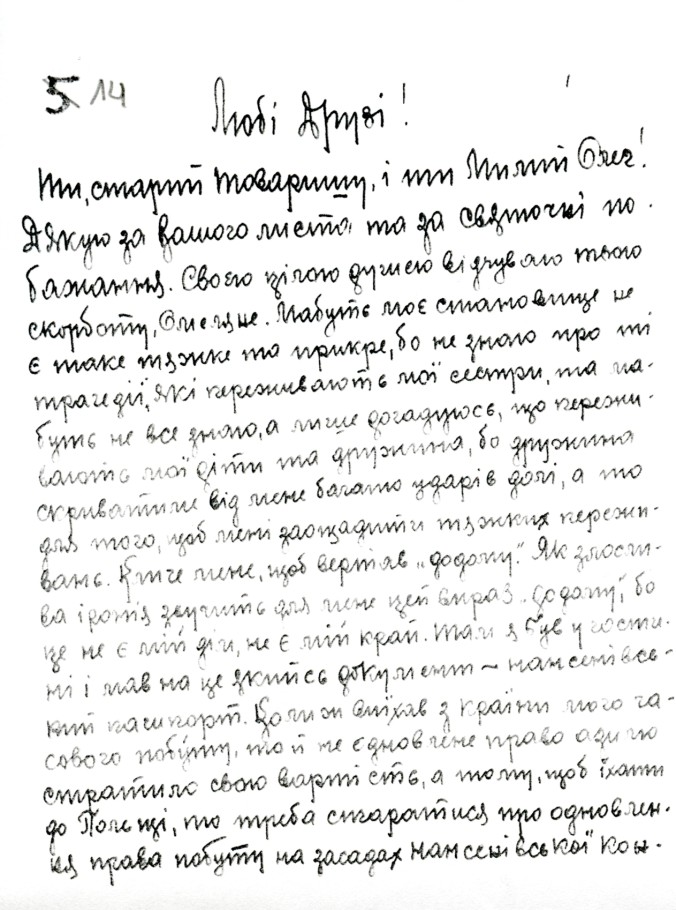 5 14
Любі Друзі!
Ти, старий товаришу, і ти Милий Олег!
Дякую за вашого листа та за святочні по-
бажання. Своєю цілою душею відчуваю твою
скорботу, Олегце. Мабуть моє становище не
є таке тяжке та прикре, бо не знаю про ті
трагедії, які переживають мої сестри, та ма-
буть не все знаю, а лише догадуюсь, що пережи-
вають мої діти та дружина, бо дружина
скриватиме від мене багато ударів долі, а то
для того, щоб мені заощадити тяжких пережи-
вань. Кличе мене, щоб вертав „додому". Як злости-
ва іронія звучить для мене цей вираз „додому", бо
це не є мій дім, не є мій край. Там я був у гости-
ні і мав на це якийсь документ – нансенівсь-
кий пашпорт. Коли ж виїхав з країни мого ча-
сового побуту, то й не єдновлене право азилю
стратило свою вартість, а тому, щоб їхати
до Польщі, то треба старатися про одновлен-
ня права побуту на засадах нансенівської кон-